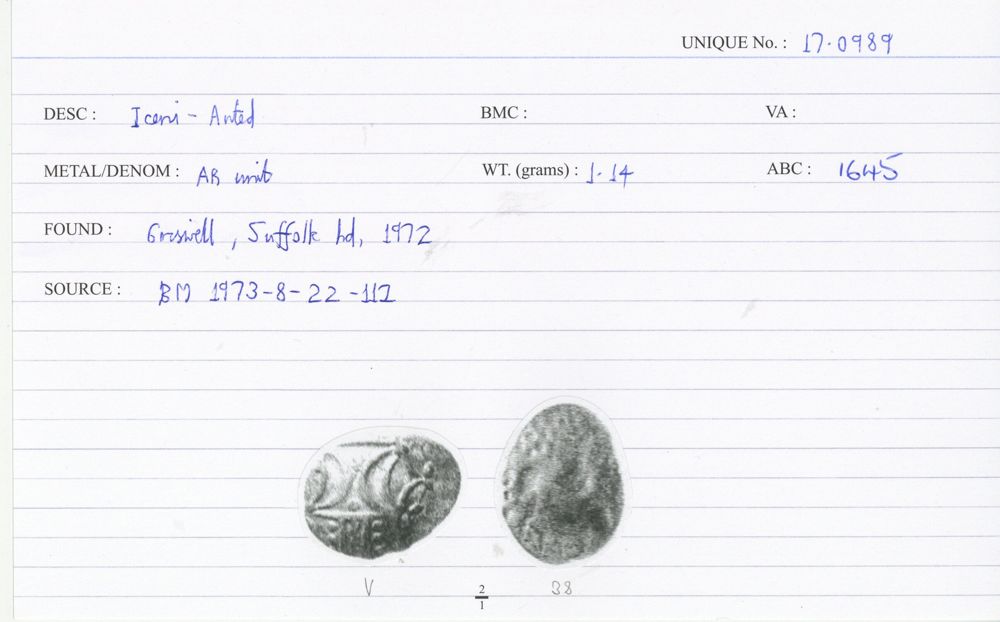 UNIQUE No. : 17.0989
DESC : Iceni - Anted BMC : VA :
METAL/DENOM : AR unit WT. (grams) : 1.14 ABC : 1645
FOUND : Eriswell, Suffolk hd, 1972
SOURCE : BM 1973-8-22-112
V 2/1 38